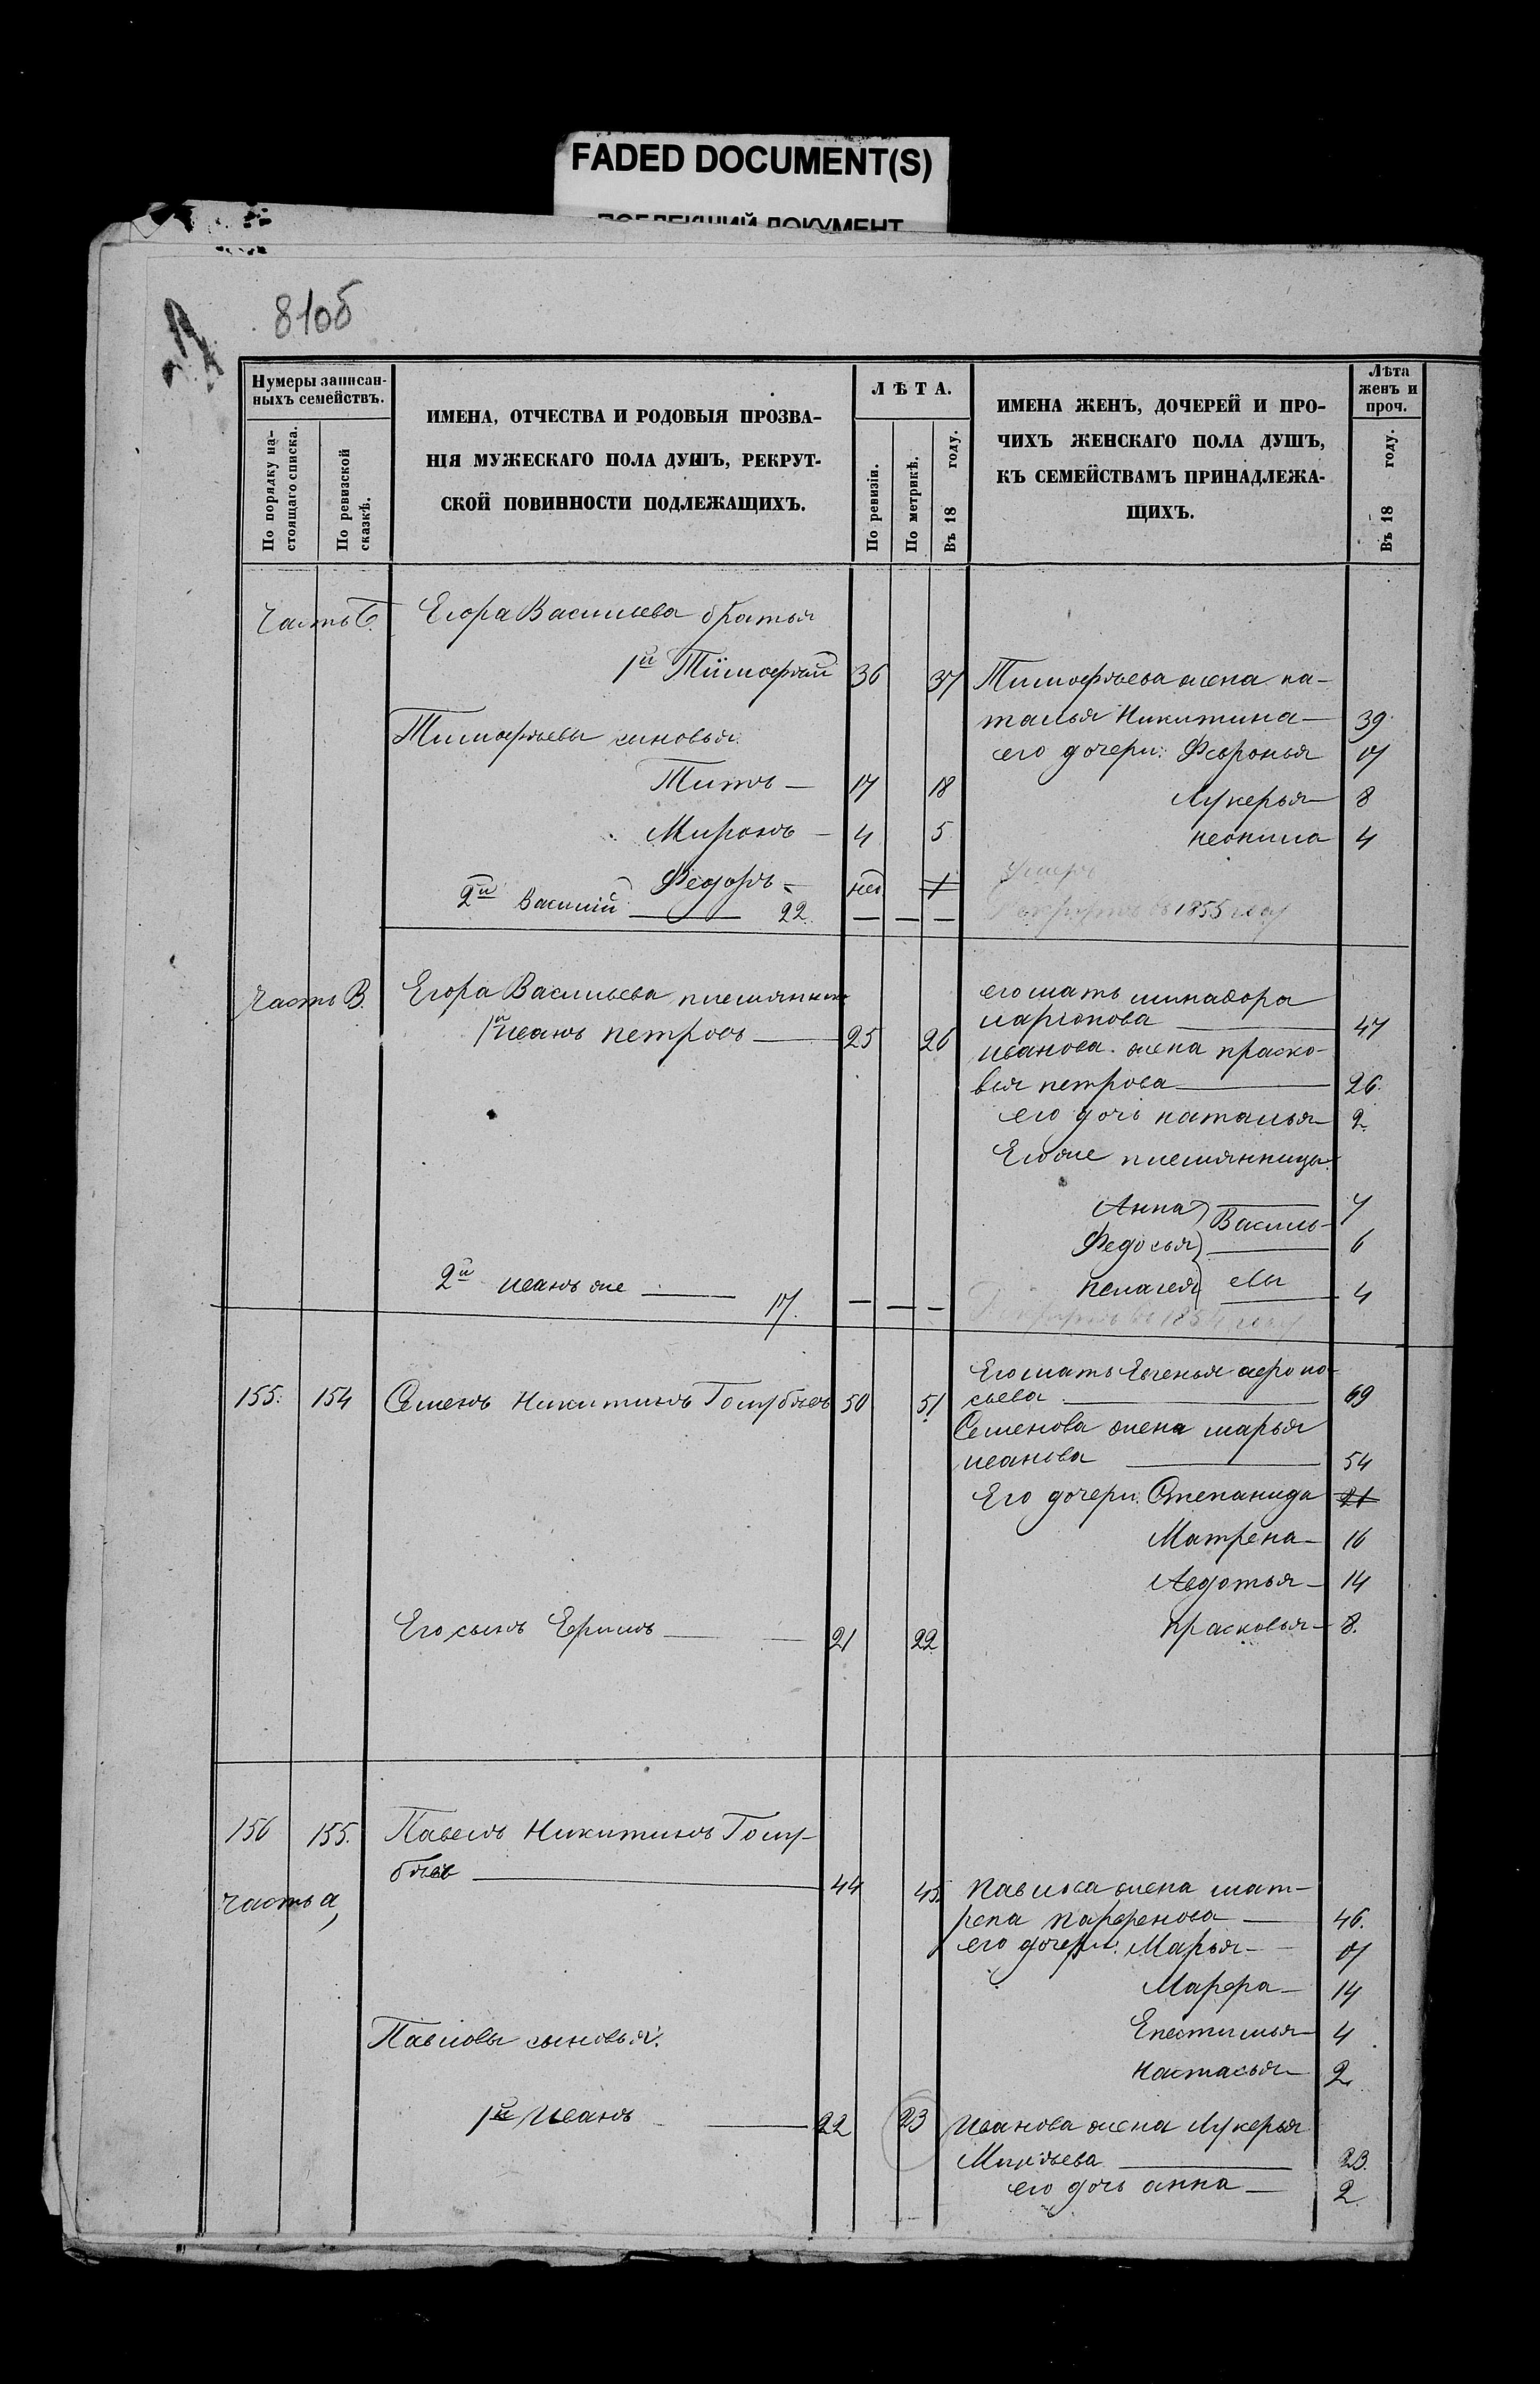 FADED DOCUMENT(S)
ПОБЛЕКШИЙ ДОКУМЕНТ
810б
Нумеры записан-
ныхъ семействъ.
По порядку на-
стоящаго списка.
По ревизской
сказкѣ.
ИМЕНА, ОТЧЕСТВА И РОДОВЫЯ ПРОЗВА-
НІЯ МУЖЕСКАГО ПОЛА ДУШЪ, РЕКРУТ-
СКОЙ ПОВИННОСТИ ПОДЛЕЖАЩИХЪ.
ЛѢТА.
По ревизіи.
По метрикѣ.
Въ 18 году.
ИМЕНА ЖЕНЪ, ДОЧЕРЕЙ И ПРО-
ЧИХЪ ЖЕНСКАГО ПОЛА ДУШЪ,
КЪ СЕМЕЙСТВАМЪ ПРИНАДЛЕЖА-
ЩИХЪ.
Лѣта
женъ и
проч.
Въ 18 году.
Часть Б. Егора Васильева братья
1й Тимофѣй 36 37 Тимофѣева жена на-
талья Никитина 39
Тимофѣевы сыновья
его дочери: Февронья 17
Титъ 17 18
Лукерья 8
Миронъ 4 5
неонила 4
Федоръ нед 1 умеръ
2й Василий 22 — — — Рекрутъ въ 1855 году
Часть В. Егора Васильева племянники
его мать минадора
ларионова 47
1й иванъ петровъ 25 26
иванова жена праско-
вья петрова 26.
его дочь наталья 2
Его же племянницы
Анна Василь- 7
Федосья 6
пелагея евы 4
2й иванъ же 17. — — — Рекрутъ въ 1854 году
Его мать Евгенья аерофо-
155. 154 Семенъ Никитинъ Голубевъ 50 51 сьева 69
Семенова жена марья
иванова 54
Его дочери: Степанида 21
Матрена 16
Авдотья 14
Его сынъ Ефимъ 21 22 прасковья 8.
156 155. Павелъ Никитинъ Голу-
бевъ 44 45.
часть а,
павлова жена мат-
рена парфенова 46.
его дочери: Марья 17
Марфа 14
Епестимья 4
Павловы сыновья:
настасья 2
1й Иванъ 22 23 Иванова жена Лукерья
23.
его дочь анна 2